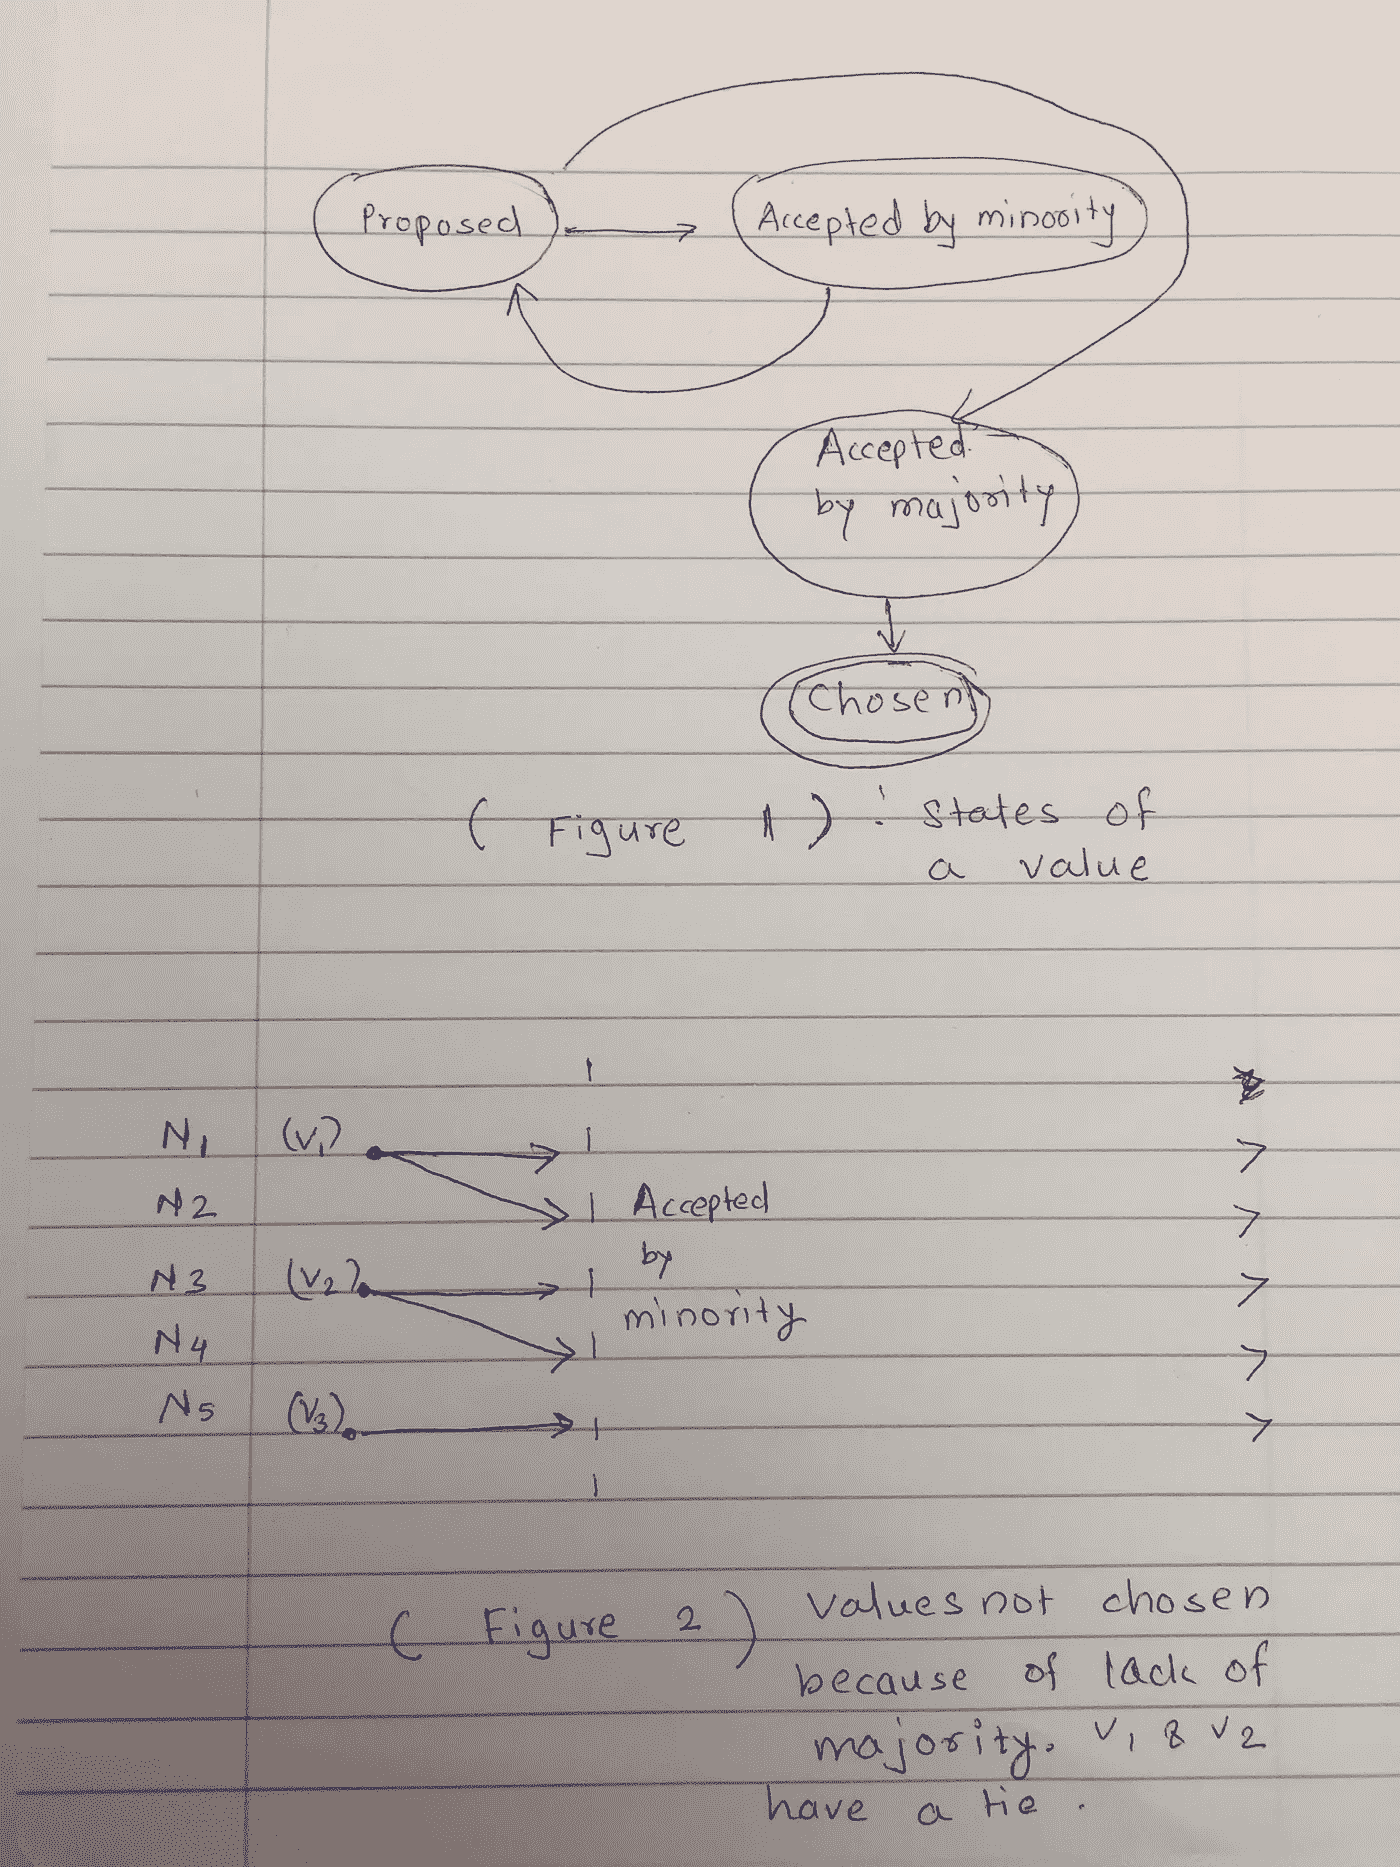 Proposed
Accepted by minority
Accepted
by majority
Chosen
( Figure 1 ) : States of
a value
N1 (V1)
N2 Accepted
by
N3 (V2)
minority
N4
N5 (V3)
( Figure 2 ) Values not chosen
because of lack of
majority. V1 & V2
have a tie .